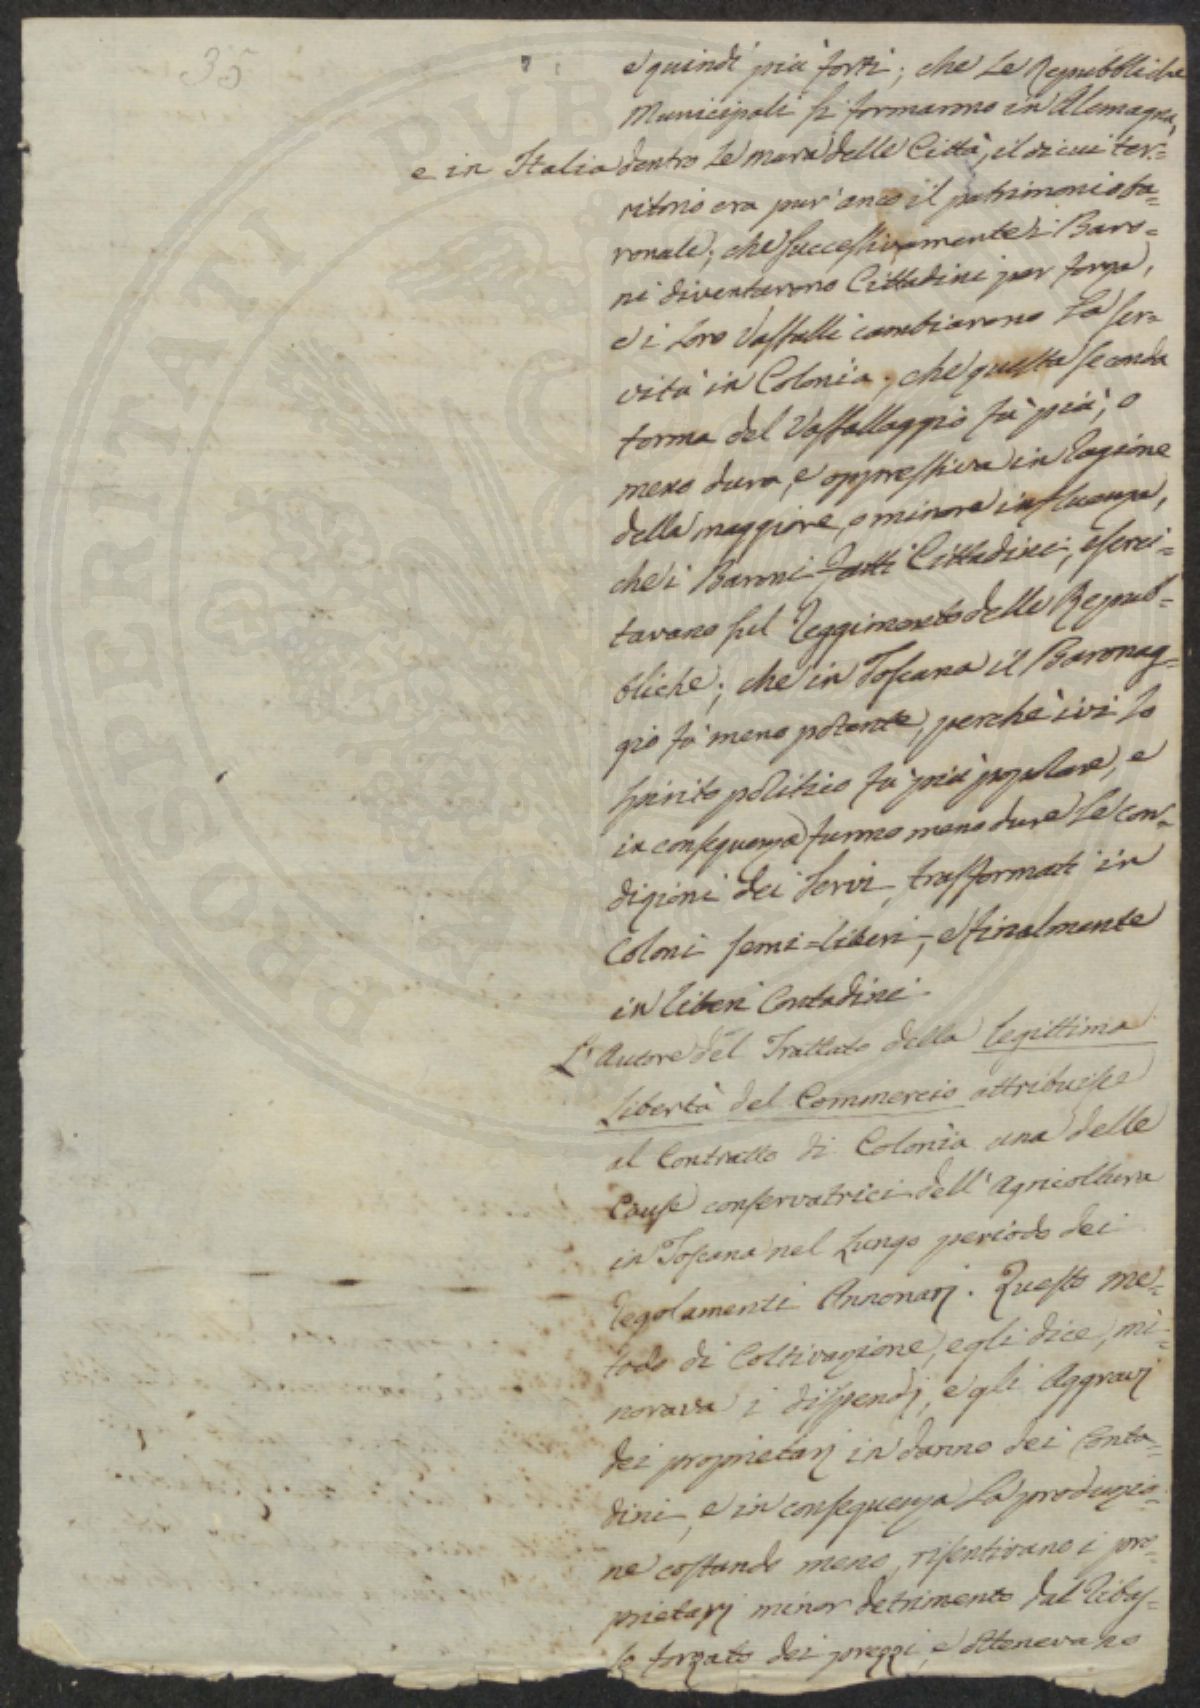 35
e quindi più forti; che le Repubbliche
Municipali si formarono in Alemagna,
e in Italia dentro le mura delle Città, il di cui ter=
ritorio era pur' anco il patrimonio ba=
ronale; che successivamente i Baro=
ni diventarono Cittadini per forza,
e i loro Vassalli cambiarono la ser=
vitù in Colonia; che questa seconda
forma del Vassallaggio fù più, o
meno dura, e oppressiva in ragione
della maggiore, o minore influenza,
che i Baroni fatti Cittadini, eserci=
tavano sul Reggimento delle Repub=
bliche; che in Toscana il Baronag=
gio fù meno potente, perchè ivi lo
spirito politico fù più popolare, e
in conseguenza furono meno dure le con=
dizioni dei Servi, trasformati in
Coloni semi=liberi, e finalmente
in liberi Contadini.
L'Autore del Trattato della legittima
Libertà del Commercio attribuisce
al Contratto di Colonìa una delle
Cause conservatrici dell'Agricoltura
in Toscana nel lungo periodo dei
regolamenti Annonarj. Questo me=
todo di Coltivazione, egli dice, mi=
norava i dispendj, e gli Aggravj
dei proprietarj in danno dei Conta=
dini, e in conseguenza la produzio=
ne costando meno, risentivano i pro=
prietarj minor detrimento dal ribas=
so forzato dei prezzi, e ottenevano